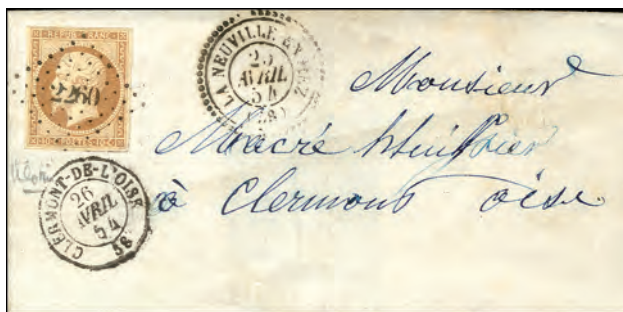 REPUB. FRANC.
2260
POSTES
LA NEUVILLE EN HEZ
25
AVRIL
54
(58)
CLERMONT-DE-L'OISE
26
AVRIL
54
58
Monsieur
Macré huissier
à Clermont oise